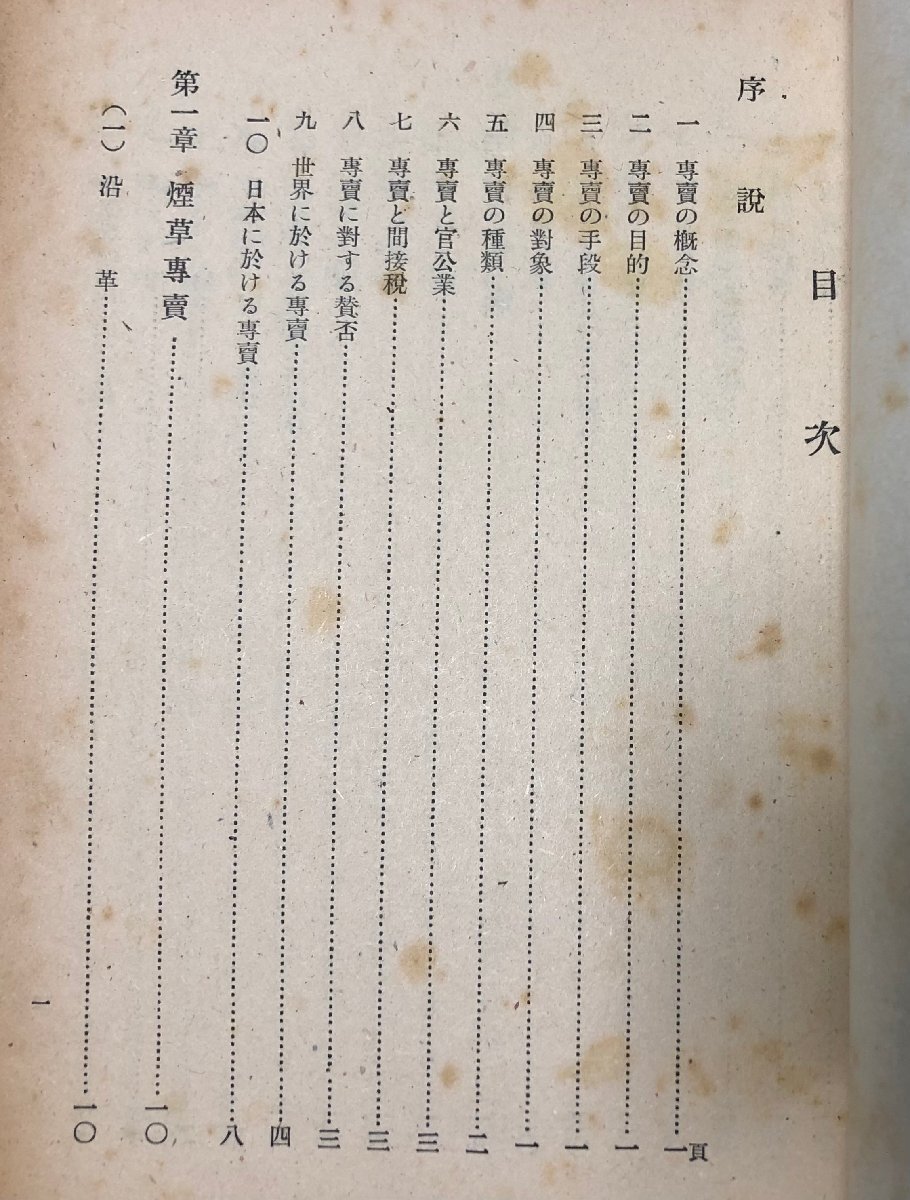 目次
序說
一 專賣の槪念……一頁
二 專賣の目的……一
三 專賣の手段……一
四 專賣の對象……一
五 專賣の種類……二
六 專賣と官公業……三
七 專賣と間接稅……三
八 專賣に對する賛否……三
九 世界に於ける專賣……四
一〇 日本に於ける專賣……八
第一章 煙草專賣……一〇
(一) 沿革……一〇
一